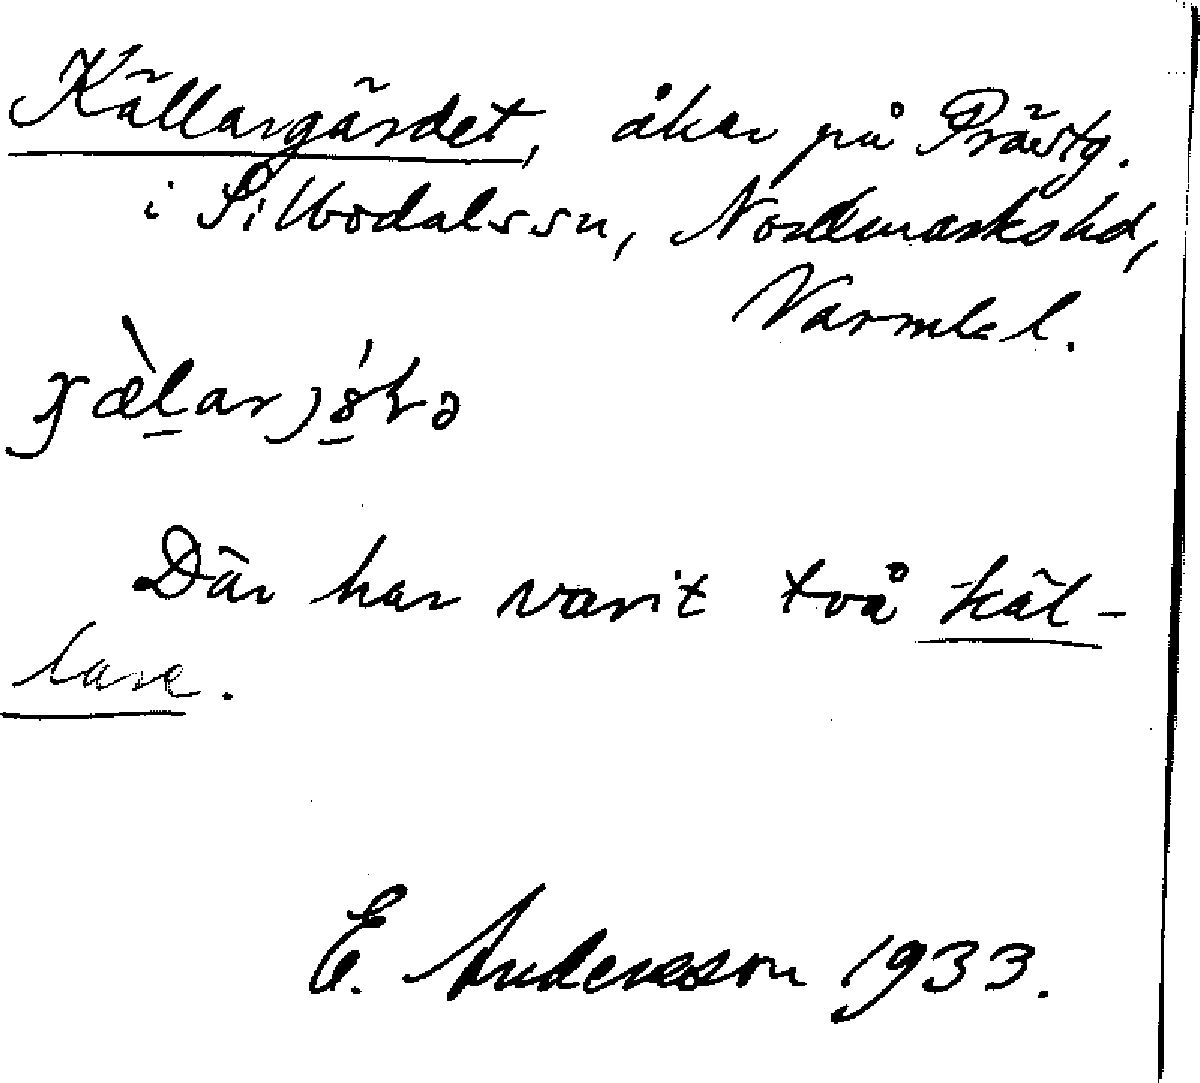 Källargärdet, åker på Prästg.
i Silbodalssn, Nordmarkshd,
Värmls l.
Där har varit två käl-
lare.
E. Andersson 1933.